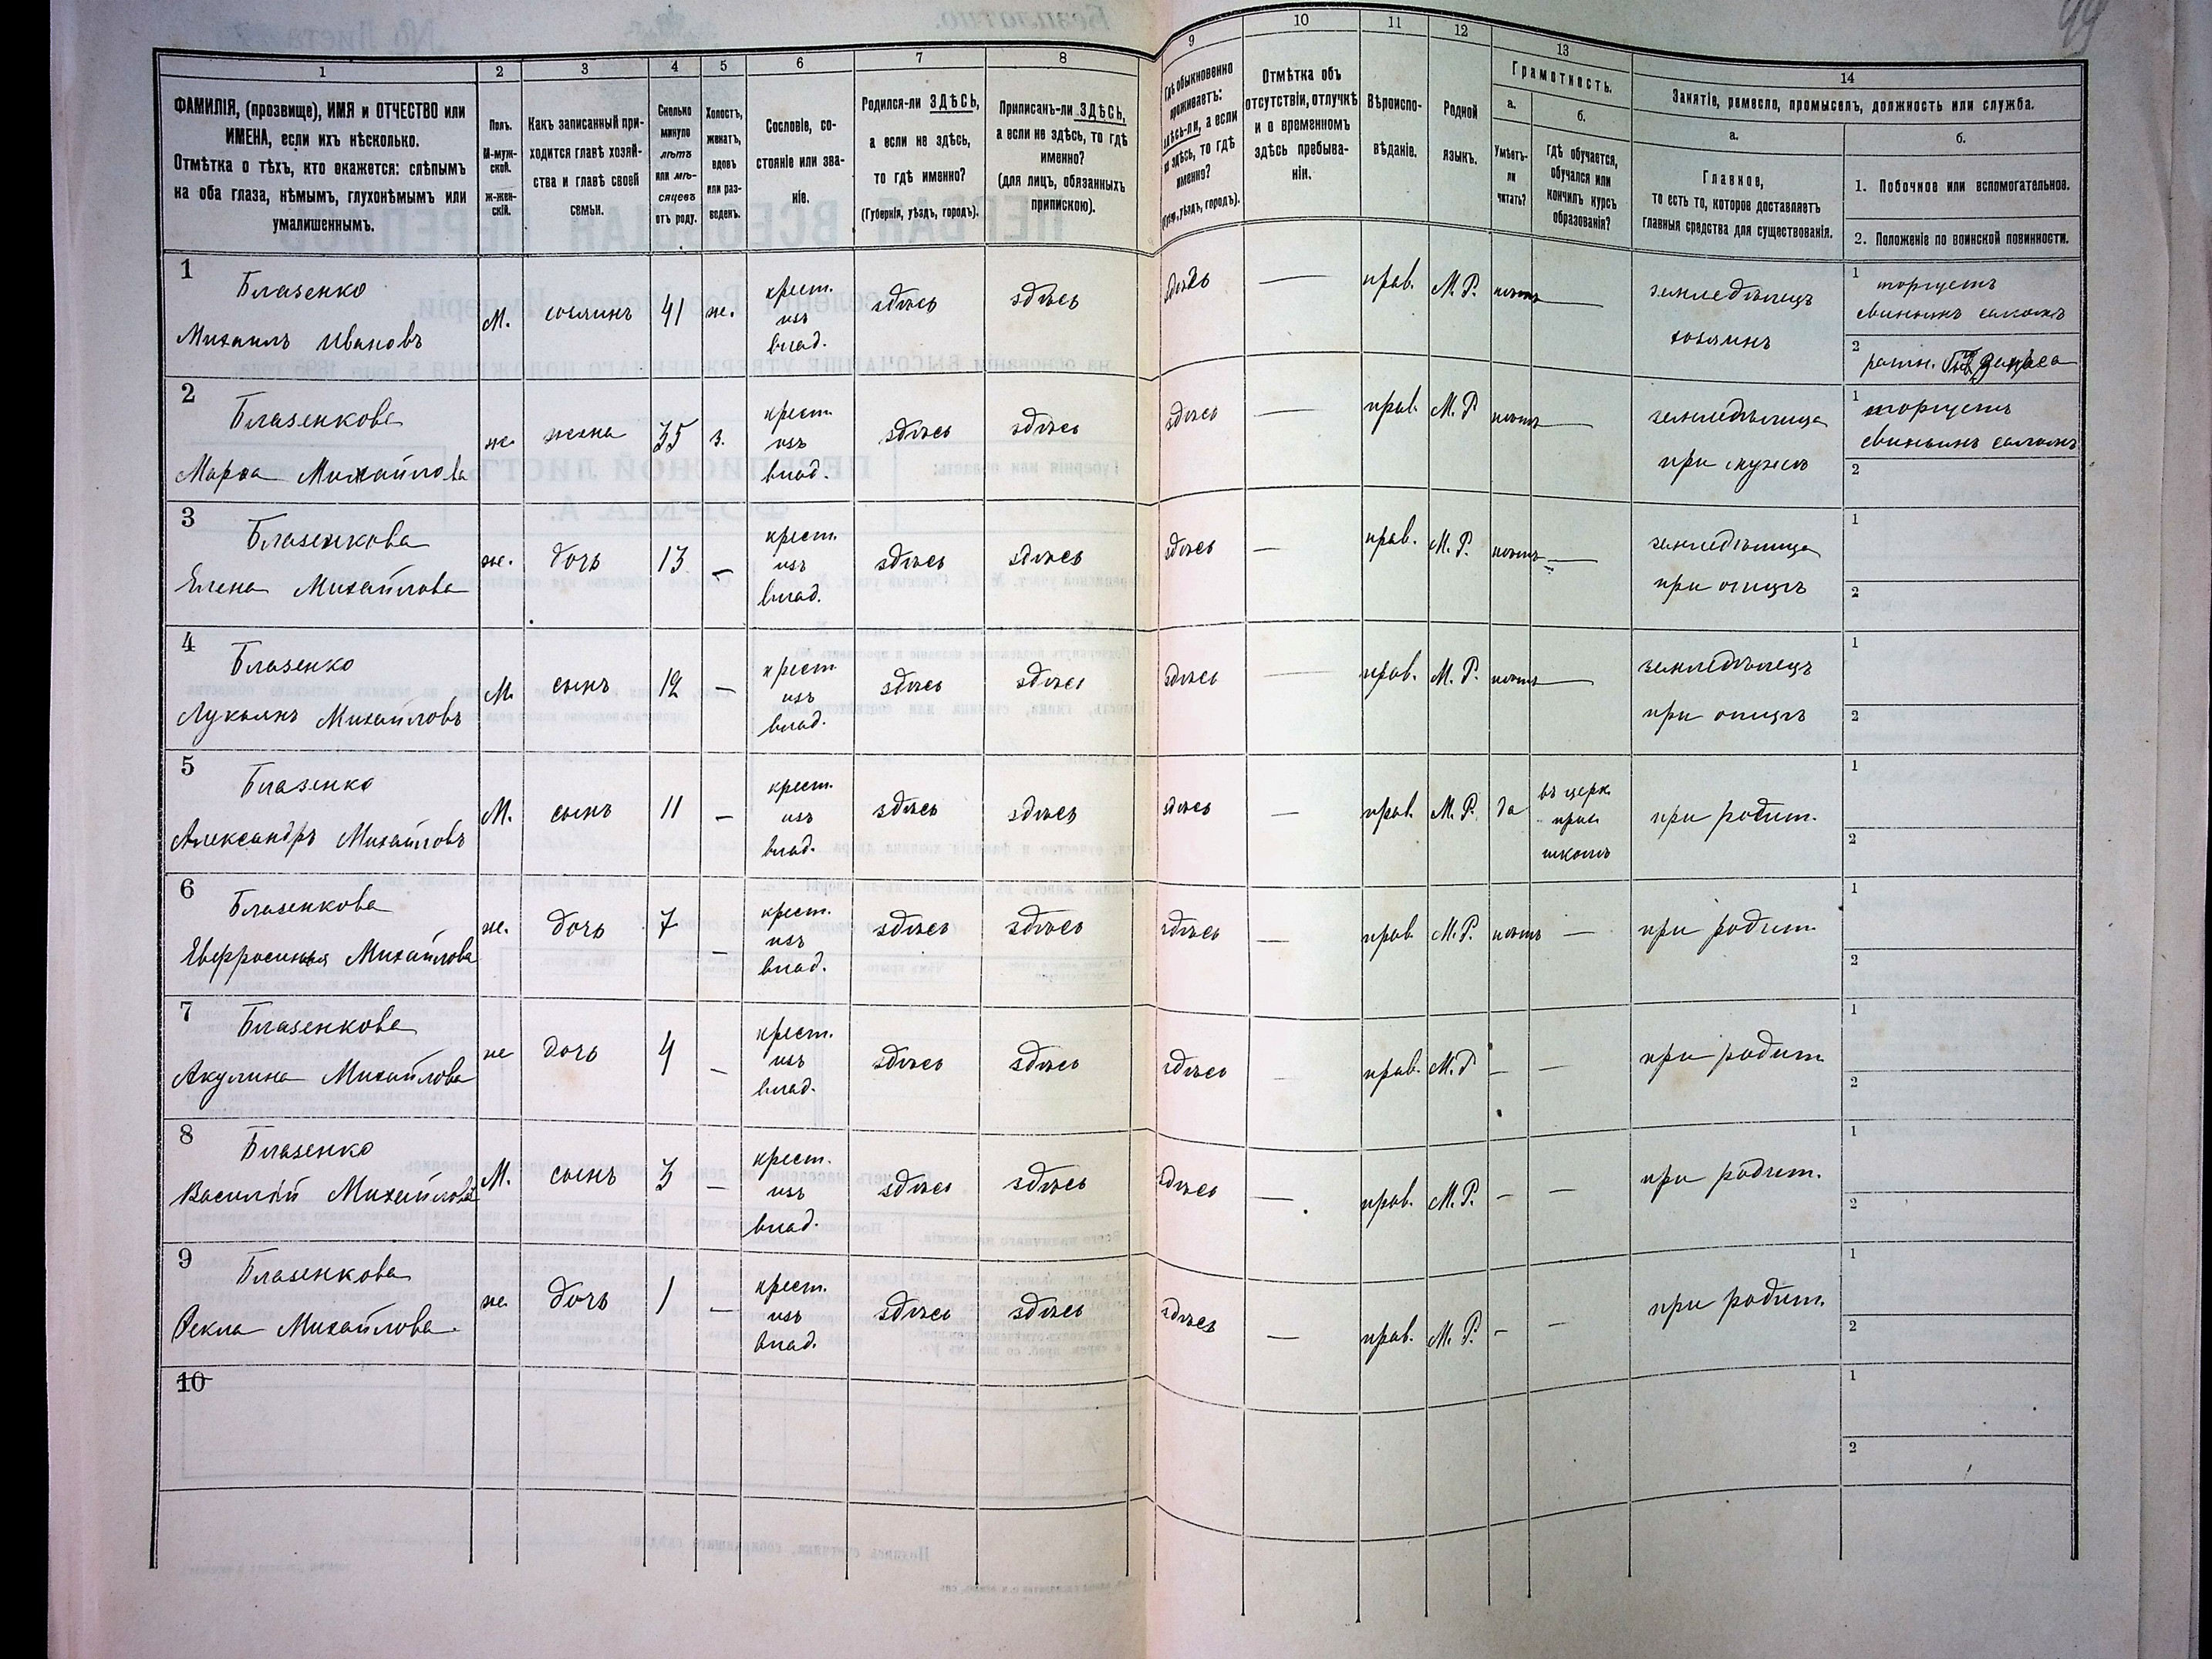 99
1 2 3 4 5 6 7 8 9 10 11 12 13 14
ФАМИЛІЯ, (прозвище), ИМЯ и ОТЧЕСТВО или
ИМЕНА, если ихъ нѣсколько.
Отмѣтка о тѣхъ, кто окажется: слѣпымъ
на оба глаза, нѣмымъ, глухонѣмымъ или
умалишеннымъ.
Полъ.
М-муж-
ской.
ж-жен-
скій.
Какъ записанный при-
ходится главѣ хозяй-
ства и главѣ своей
семьи.
Сколько
минуло
лѣтъ
или мѣ-
сяцевъ
отъ роду.
Холостъ,
женатъ,
вдовъ
или раз-
веденъ.
Сословіе, со-
стояніе или зва-
ніе.
Родился-ли ЗДѢСЬ,
а если не здѣсь,
то гдѣ именно?
(Губернія, уѣздъ, городъ).
Приписанъ-ли ЗДѢСЬ,
а если не здѣсь, то гдѣ
именно?
(для лицъ, обязанныхъ
припискою).
Гдѣ обыкновенно
проживаетъ:
здѣсь-ли, а если
не здѣсь, то гдѣ
именно?
(Губ., уѣздъ, городъ).
Отмѣтка объ
отсутствіи, отлучкѣ
и о временномъ
здѣсь пребыва-
ніи.
Вѣроиспо-
вѣданіе.
Родной
языкъ.
Грамотность.
а.
Умѣетъ-
ли
читать?
б.
гдѣ обучается,
обучался или
кончилъ курсъ
образованія?
Занятіе, ремесло, промыселъ, должность или служба.
а.
Главное,
то есть то, которое доставляетъ
главныя средства для существованія.
б.
1. Побочное или вспомогательное.
2. Положеніе по воинской повинности.
1
Блазенко
Михаилъ Ивановъ
М.
хозяинъ
41
ж.
крест.
изъ
влад.
здѣсь
здѣсь
здѣсь
—
прав.
М. Р.
нѣтъ
—
земледѣлецъ
хозяинъ
1 торгуетъ
свинымъ саломъ
2 ратн.
2
Блазенкова
Марѳа Михайлова
ж.
жена
35
з.
крест.
изъ
влад.
здѣсь
здѣсь
здѣсь
—
прав.
М. Р
нѣтъ
—
земледѣлица
при мужѣ
1 торгуетъ
свинымъ саломъ
2
3
Блазенкова
Елена Михайлова
ж.
дочь
13
—
крест.
изъ
влад.
здѣсь
здѣсь
здѣсь
—
прав.
М. Р.
нѣтъ
—
земледѣлица
при отцѣ
1
2
4
Блазенко
Лукьянъ Михайловъ
М.
сынъ
12
—
крест.
изъ
влад.
здѣсь
здѣсь
здѣсь
—
прав.
М. Р.
нѣтъ
—
земледѣлецъ
при отцѣ
1
2
5
Блазенко
Александръ Михайловъ
М.
сынъ
11
—
крест.
изъ
влад.
здѣсь
здѣсь
здѣсь
—
прав.
М. Р.
да
въ церк.
прих.
школѣ
при родит.
1
2
6
Блазенкова
Евфросинья Михайлова
ж.
дочь
7
—
крест.
изъ
влад.
здѣсь
здѣсь
здѣсь
—
прав.
М. Р.
нѣтъ
—
при родит.
1
2
7
Блазенкова
Акулина Михайлова
ж
дочь
4
—
крест.
изъ
влад.
здѣсь
здѣсь
здѣсь
—
прав.
М. Р
—
—
при родит
1
2
8
Блазенко
Василій Михайловъ
М.
сынъ
3
—
крест.
изъ
влад.
здѣсь
здѣсь
здѣсь
—
прав.
М. Р.
—
—
при родит.
1
2
9
Блазенкова
Ѳекла Михайлова
ж.
дочь
1
—
крест.
изъ
влад.
здѣсь
здѣсь
здѣсь
—
прав.
М. Р.
—
—
при родит.
1
2
10
1
2